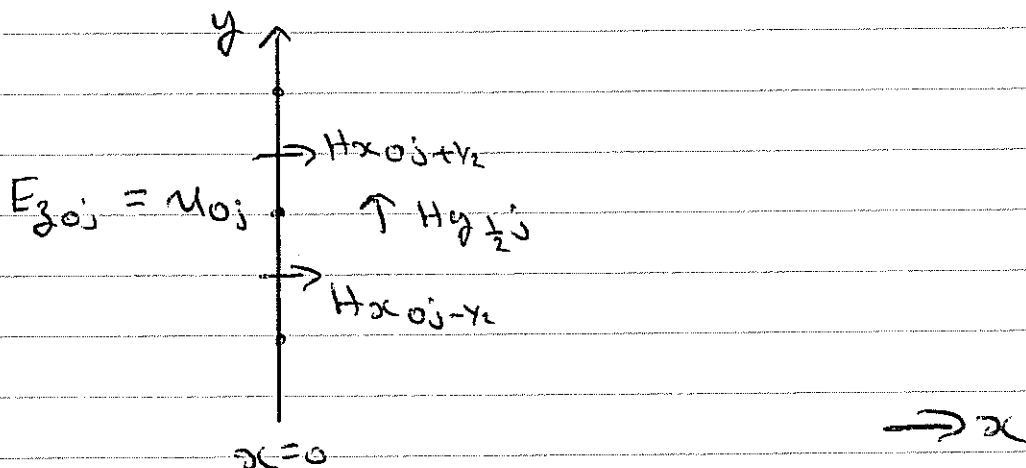 y
Hx0j+1/2
Ez0j = u0j
Hy 1/2 j
Hx0j-1/2
x
x=0